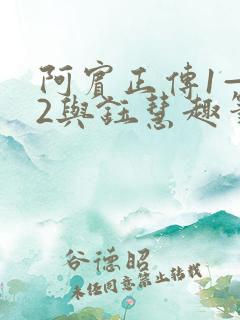 阿賓正傳1—
2與鈺慧趣
谷德昭
未经同意禁止转载